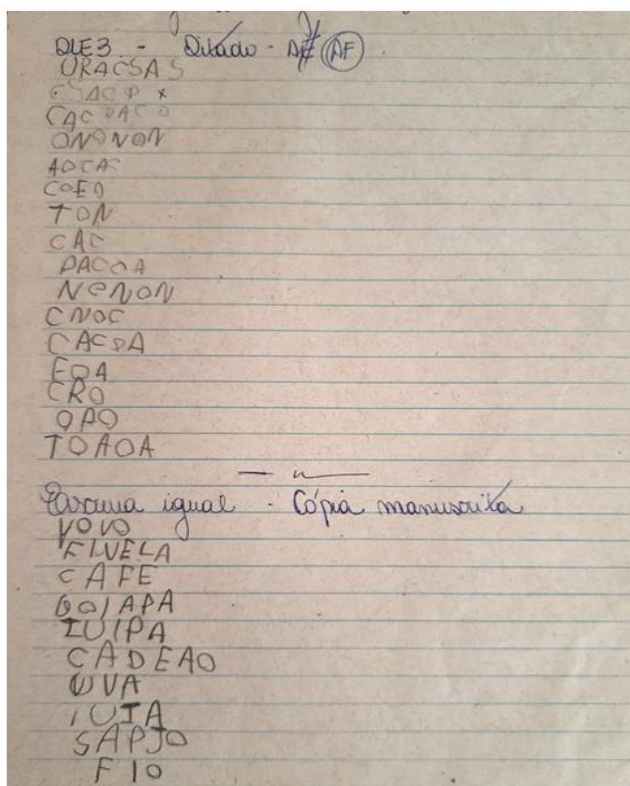 DLE3 - Ditado - AF
URACSAS
CSACP x
CACDACD
ONONON
ADCAC
COED
TON
CAC
PACOA
NENON
CNOC
CACDA
EDA
CRO
OPO
TOAOA
Escreva igual - Cópia manuscrita
VOVO
FIVELA
CAFE
GOIAPA
IUIPA
CADEAO
UVA
IUIA
SAPJO
FIO